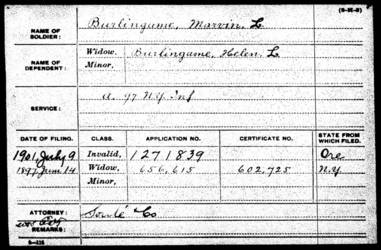 (3-35-6)
NAME OF SOLDIER: Burlingame, Marvin L
NAME OF DEPENDENT: Widow, Burlingame, Helen L
Minor,
SERVICE: A. 97 N.Y. Inf
DATE OF FILING. CLASS. APPLICATION NO. CERTIFICATE NO. STATE FROM WHICH FILED.
1901, July 9 Invalid, 1271839 Ore
1897, June 14 Widow, 656,615 602,725 N.Y.
Minor,
ATTORNEY: Soulé & Co
REMARKS: